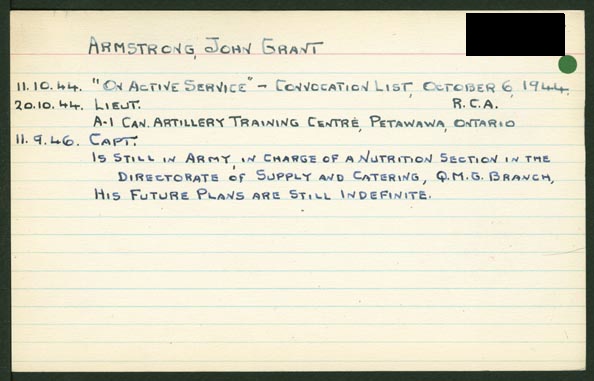 ARMSTRONG, JOHN GRANT
11.10.44. "ON ACTIVE SERVICE" - CONVOCATION LIST, OCTOBER 6, 1944.
20.10.44. LIEUT. R.C.A.
A-1 CAN. ARTILLERY TRAINING CENTRE, PETAWAWA, ONTARIO
11.9.46. CAPT.
IS STILL IN ARMY, IN CHARGE OF A NUTRITION SECTION IN THE
DIRECTORATE OF SUPPLY AND CATERING, Q.M.G. BRANCH,
HIS FUTURE PLANS ARE STILL INDEFINITE.